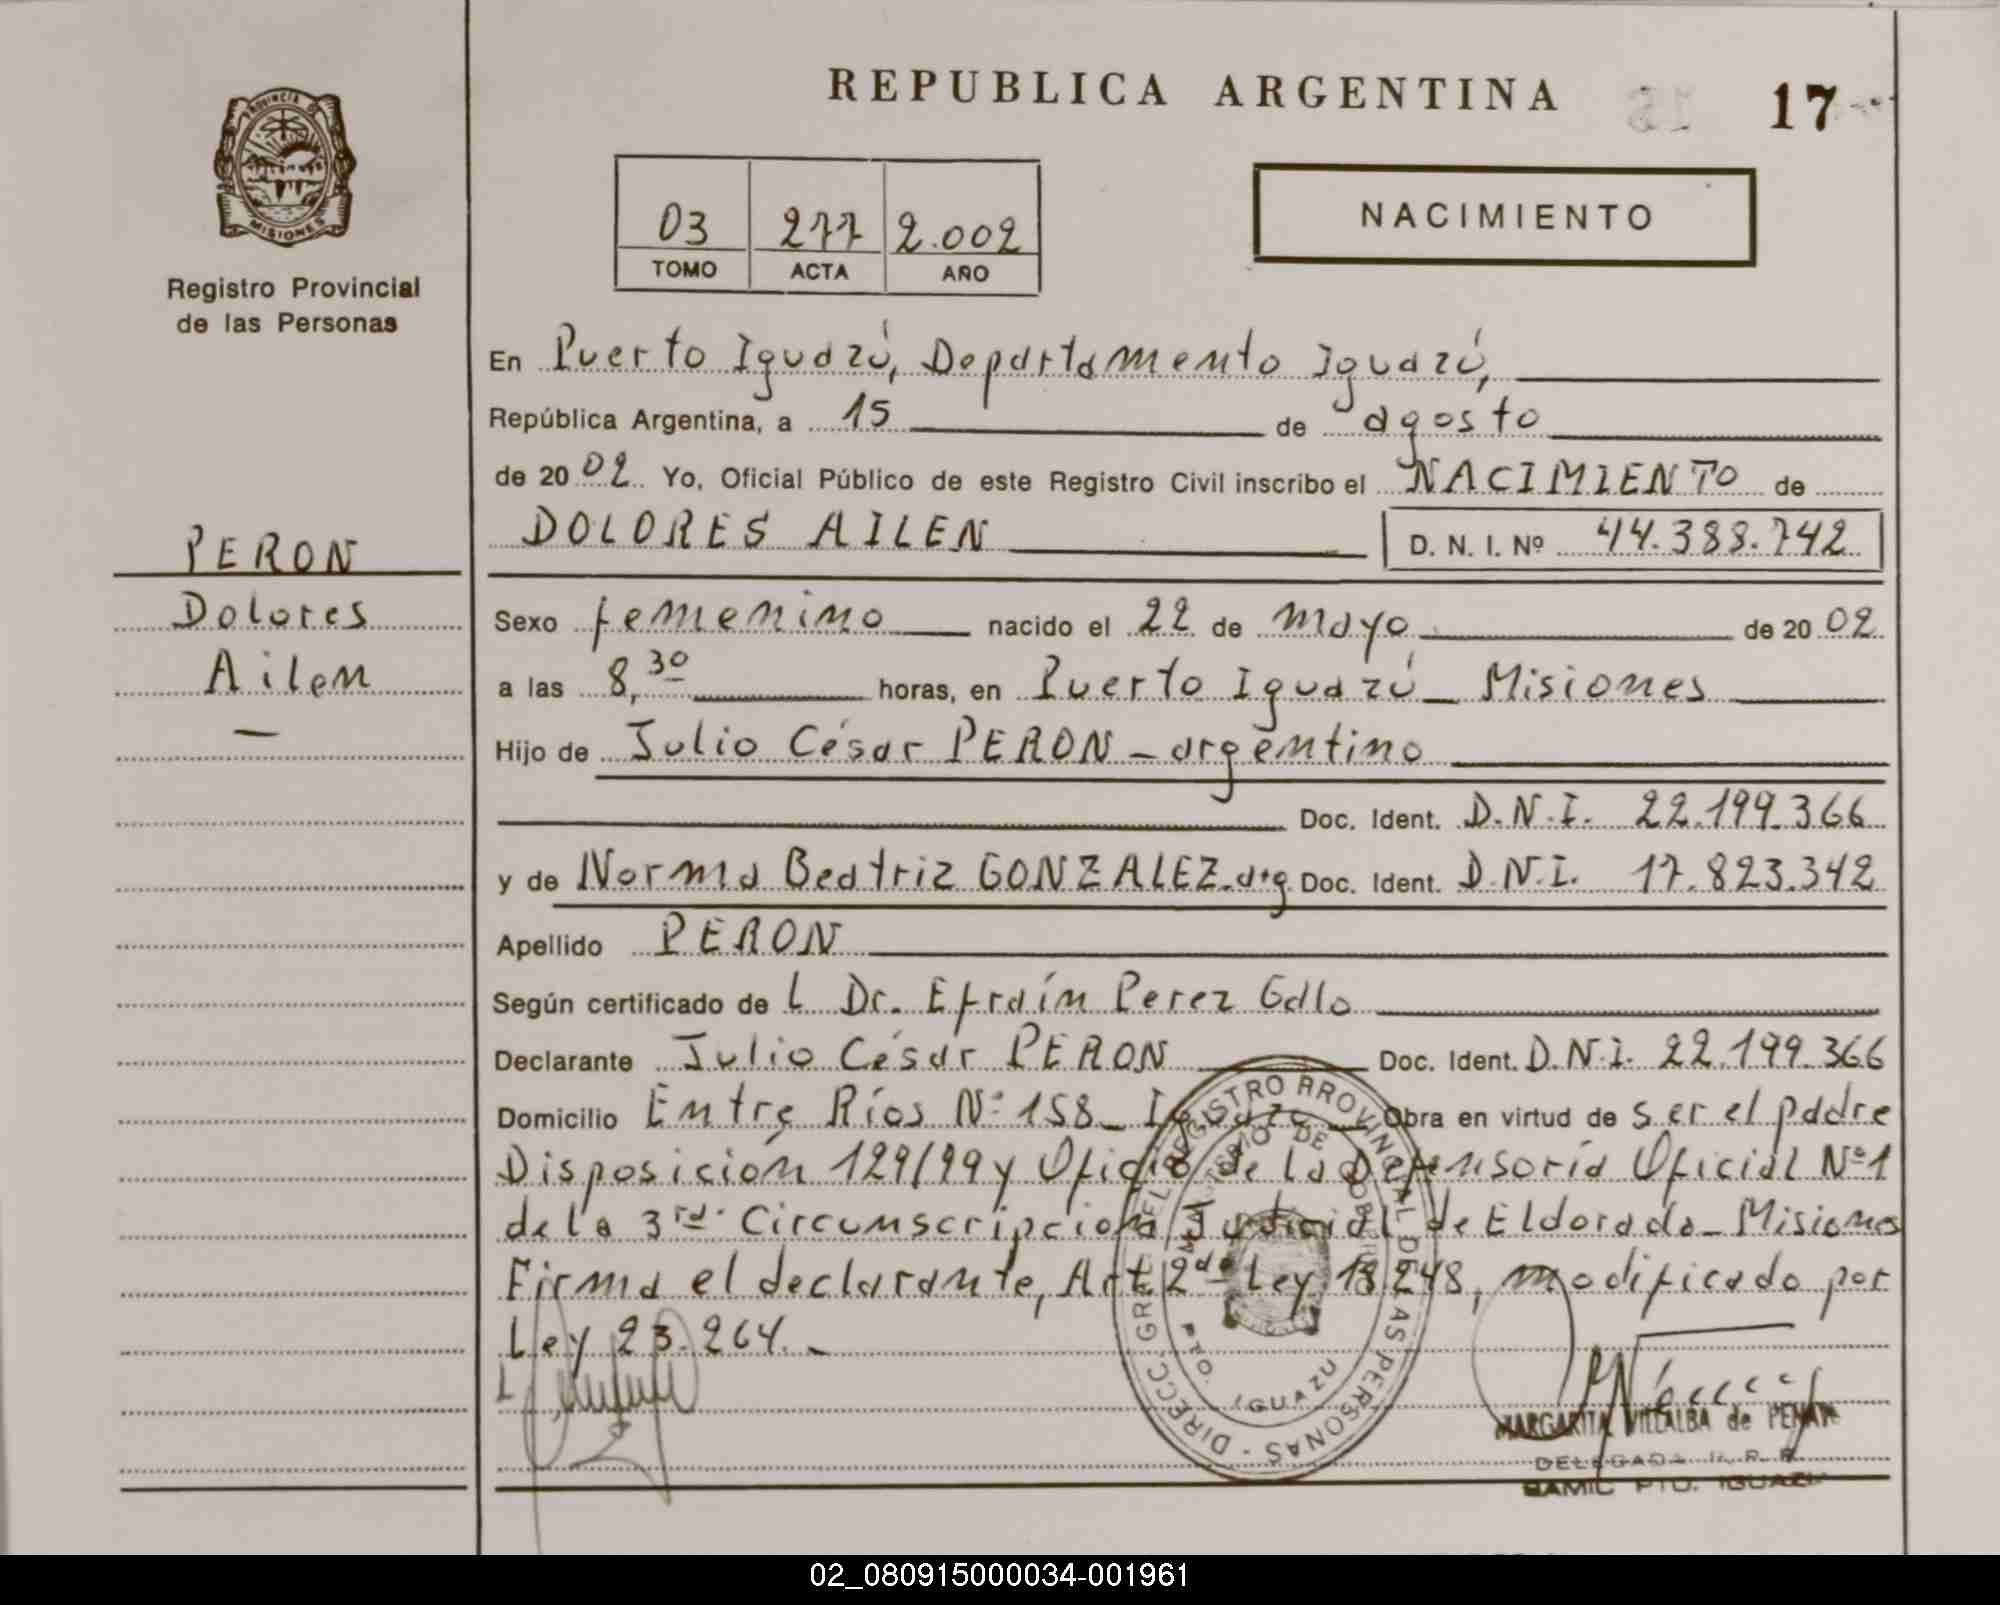 REPUBLICA ARGENTINA
17
PROVINCIA DE
MISIONES
Registro Provincial
de las Personas
03 277 2.002
TOMO ACTA AÑO
NACIMIENTO
En Puerto Iguazú, Departamento Iguazú,
República Argentina, a 15 de agosto
de 2002 Yo, Oficial Público de este Registro Civil inscribo el NACIMIENTO de
DOLORES AILEN D. N. I. Nº 44.388.742
PERON
Dolores
Ailen
Sexo femenino nacido el 22 de mayo de 2002
a las 8,30 horas, en Puerto Iguazú - Misiones
Hijo de Julio César PERON - argentino
Doc. Ident. D.N.I. 22.199.366
y de Norma Beatriz GONZALEZ-arg. Doc. Ident. D.N.I. 17.823.342
Apellido PERON
Según certificado de L Dr. Efraín Perez Gallo
Declarante Julio César PERON Doc. Ident. D.N.I. 22.199.366
Domicilio Entre Ríos Nº 158 - Iguazú Obra en virtud de ser el padre
Disposición 129/99 y Oficio de la Defensoría Oficial Nº 1
de la 3ra. Circunscripcion Judicial de Eldorado - Misiones
Firma el declarante, Art 2do Ley 18.248, modificado por
Ley 23.264.-
DIRECC. GRAL. DEL REGISTRO PROVINCIAL DE LAS PERSONAS
MINISTERIO DE GOBIERNO
PTO. IGUAZU
MARGARITA VILLALBA de
DELEGADA R. P. P.
SAMIC PTO. IGUAZU
02_080915000034-001961